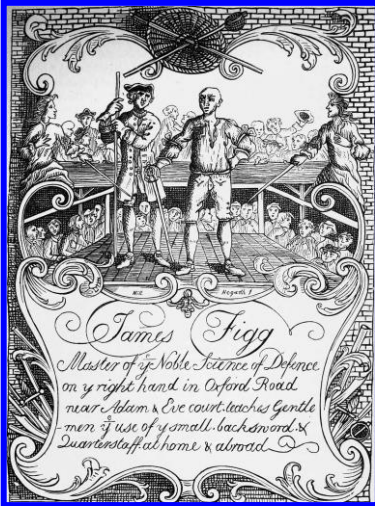 Hogarth f.
James Figg
Master of ẏᵉ Noble Science of Defence
on y right hand in Oxford Road
near Adam & Eve court. teaches Gentle
-men ẏᵉ use of y small. backsword. &
Quarterstaff. at home & abroad